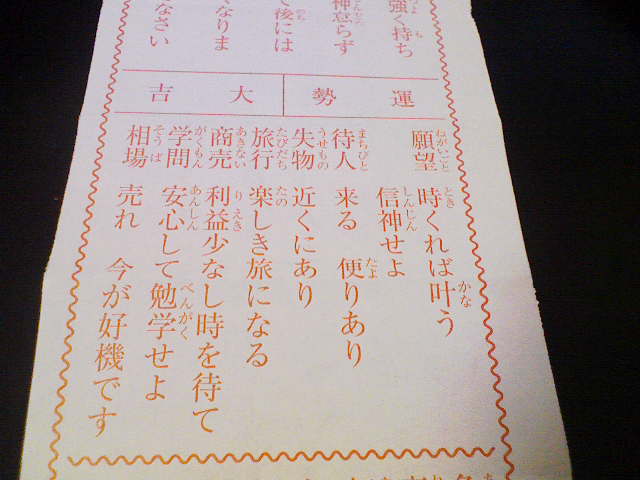 強く持ち
神怠らず
て後には
くなりま
なさい
運勢 大吉
願望 時くれば叶う
信神せよ
待人 来る 便りあり
失物 近くにあり
旅行 楽しき旅になる
商売 利益少なし時を待て
学問 安心して勉学せよ
相場 売れ 今が好機です